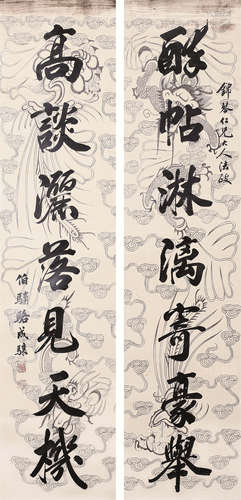 錦琴仁兄大人法政
酔帖淋漓寄豪舉
高談灑落見天機
伯驌駱成驤